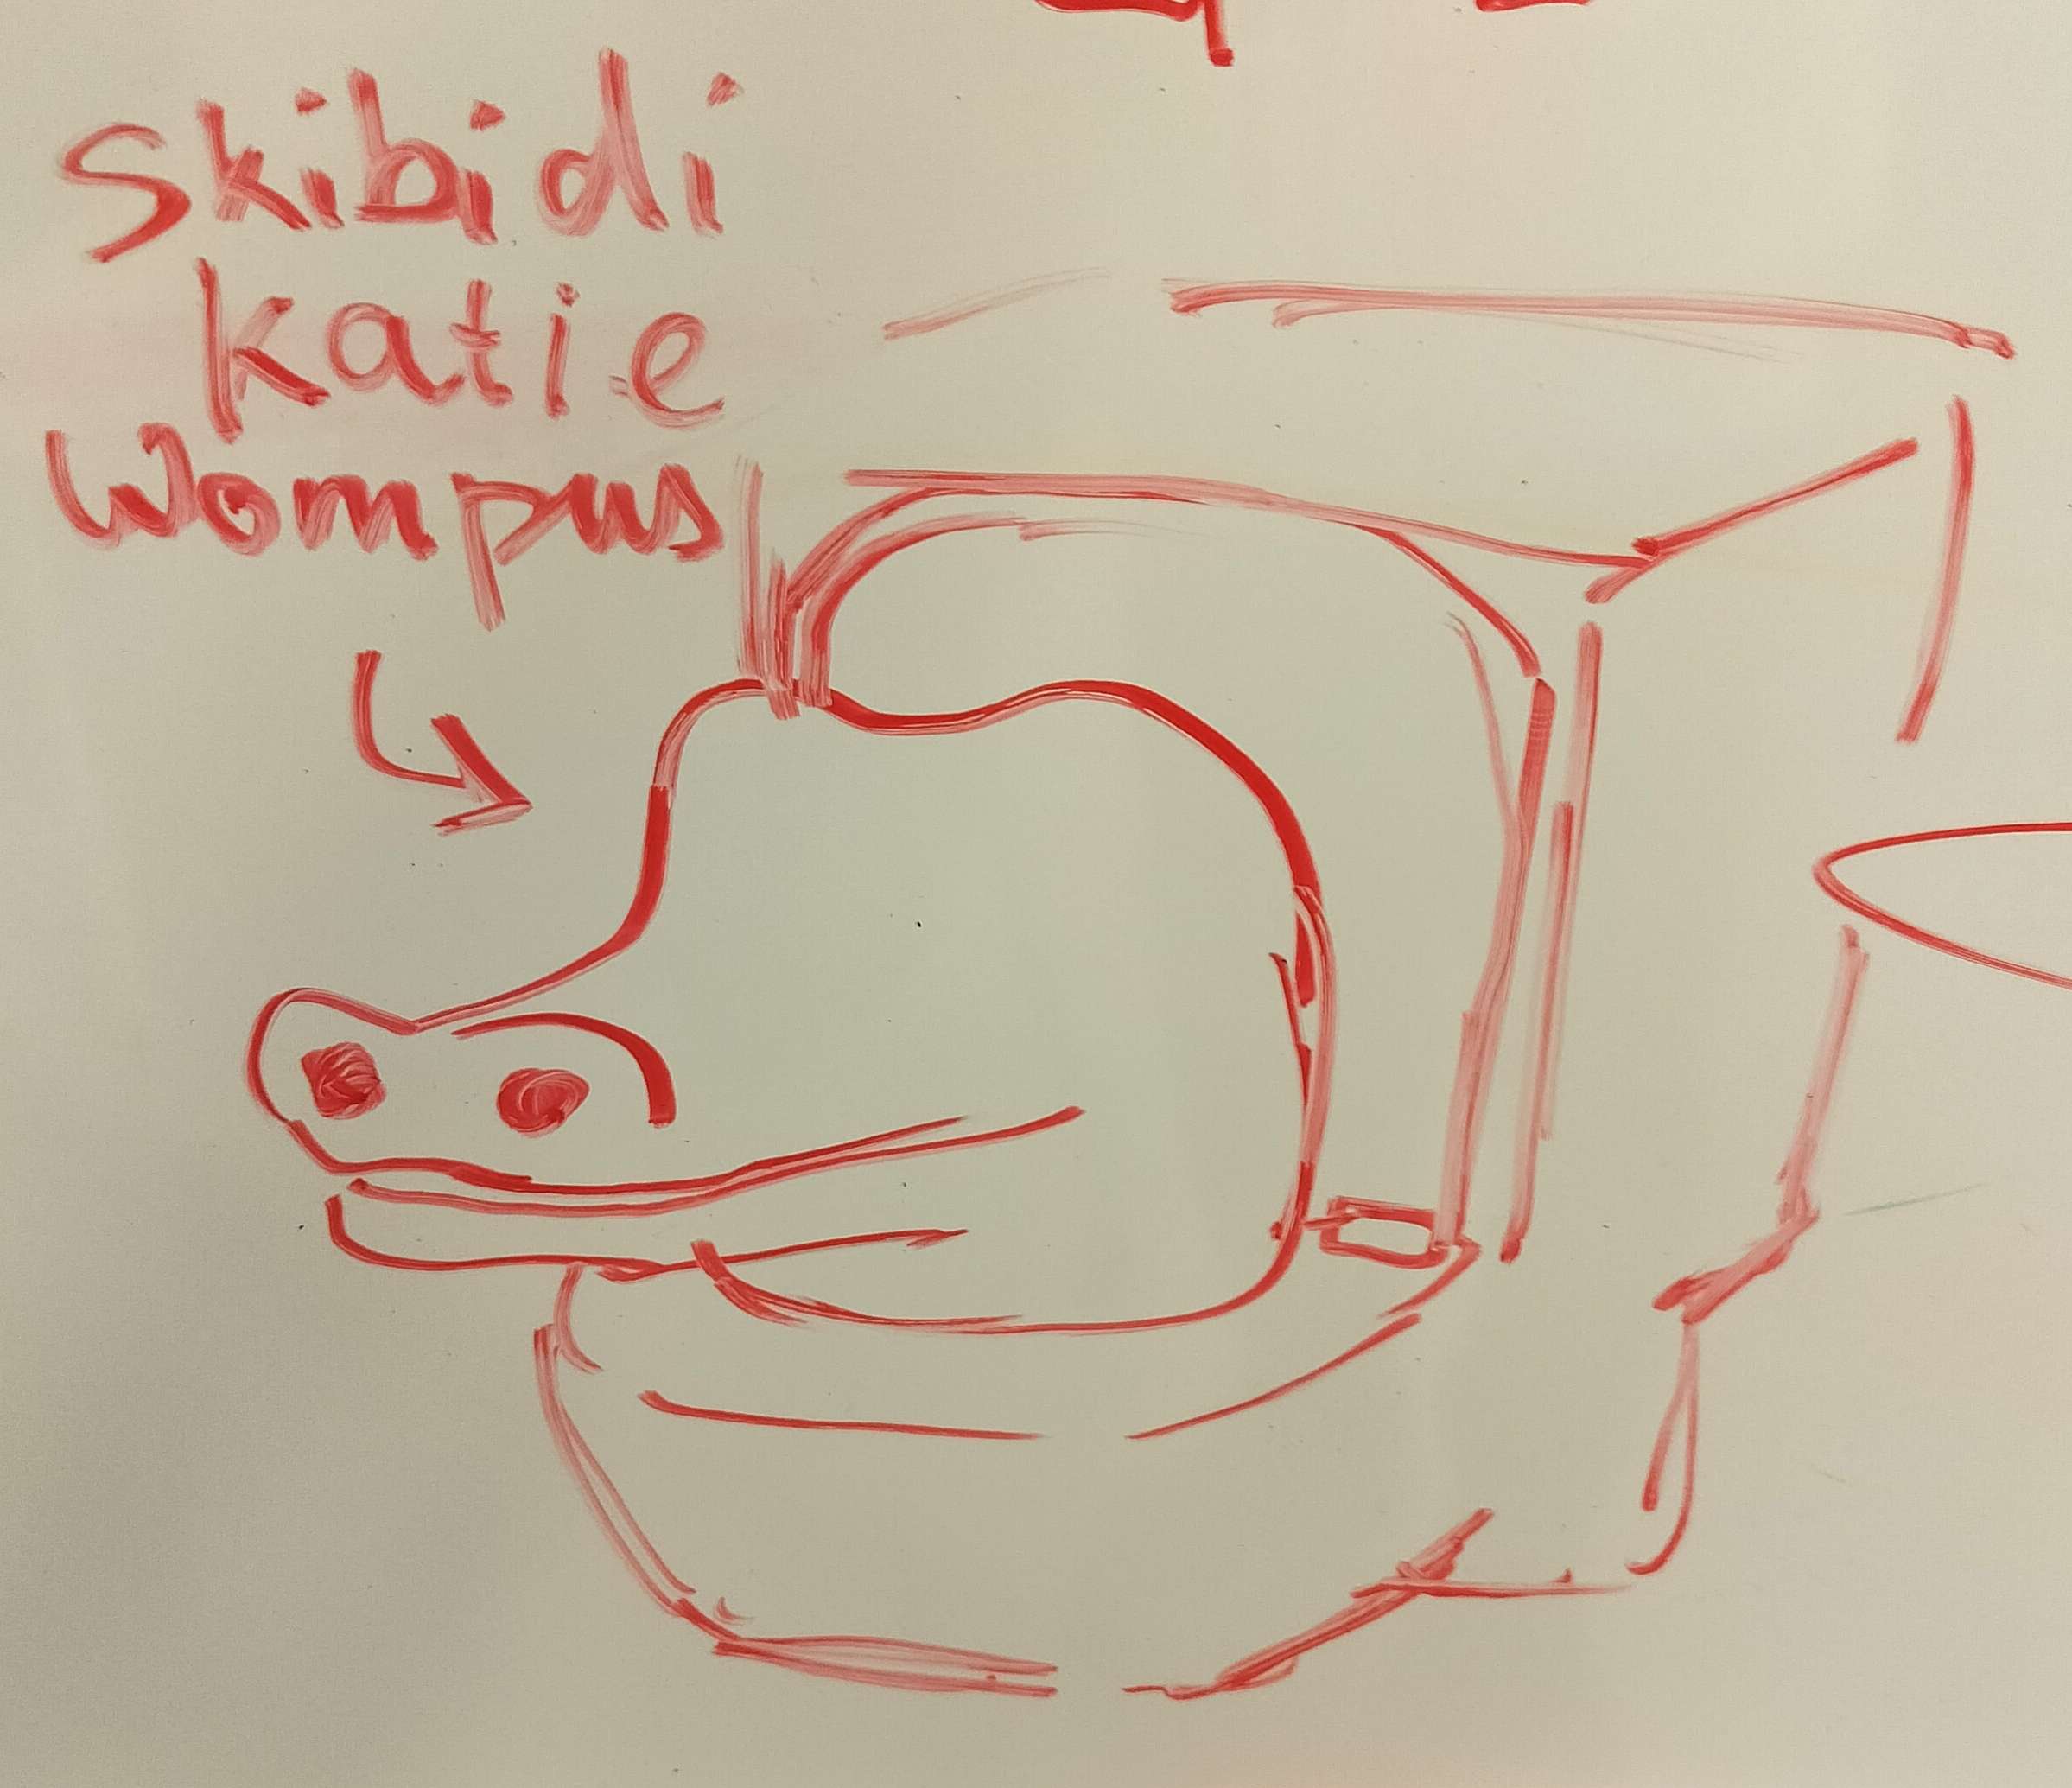 Skibidi
Katie
Wompus